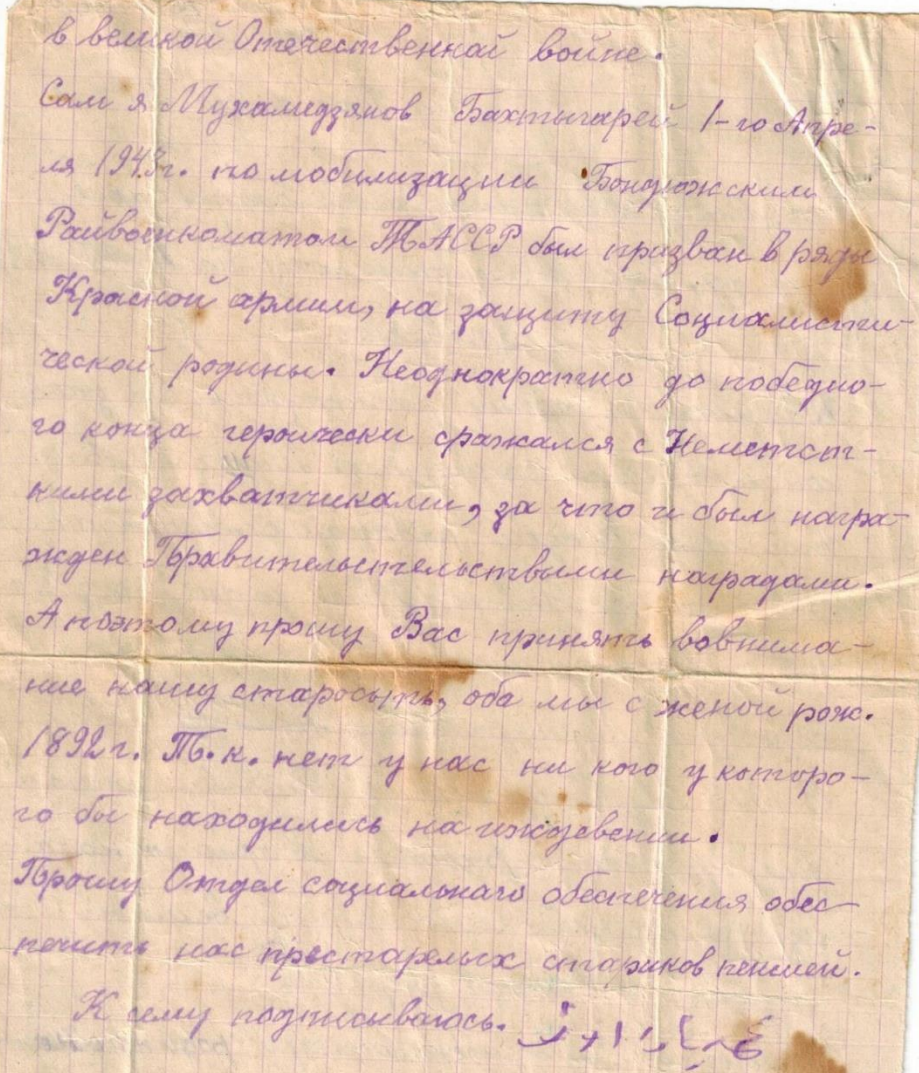 в великой Отечественной войне.
Сам я Мухамедзянов Бахтыгарей 1-го Апре-
ля 1943г. по мобилизации Бондюжским
Райвоенкоматом ТАССР был призван в ряды
Красной армии, на защиту Социалисти-
ческой родины. Неоднократно до победно-
го конца героически сражался с Неметст-
кими захватчиками, за что и был награ-
жден Правительстельствыми наградами.
А поэтому прошу Вас принять вовнима-
ние нашу старосыть, оба мы с женой рож.
1892г. Т.к. нет у нас ни кого у которо-
го бы находились на иждевении.
Прошу Отдел социальнаго обеспечения обес-
печить нас престарелых стариков пенсией.
К сему подписываюсь.